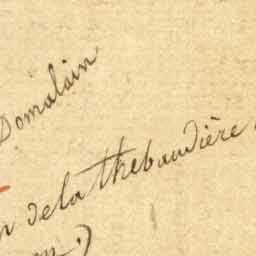 Domalain
de la thebaudière